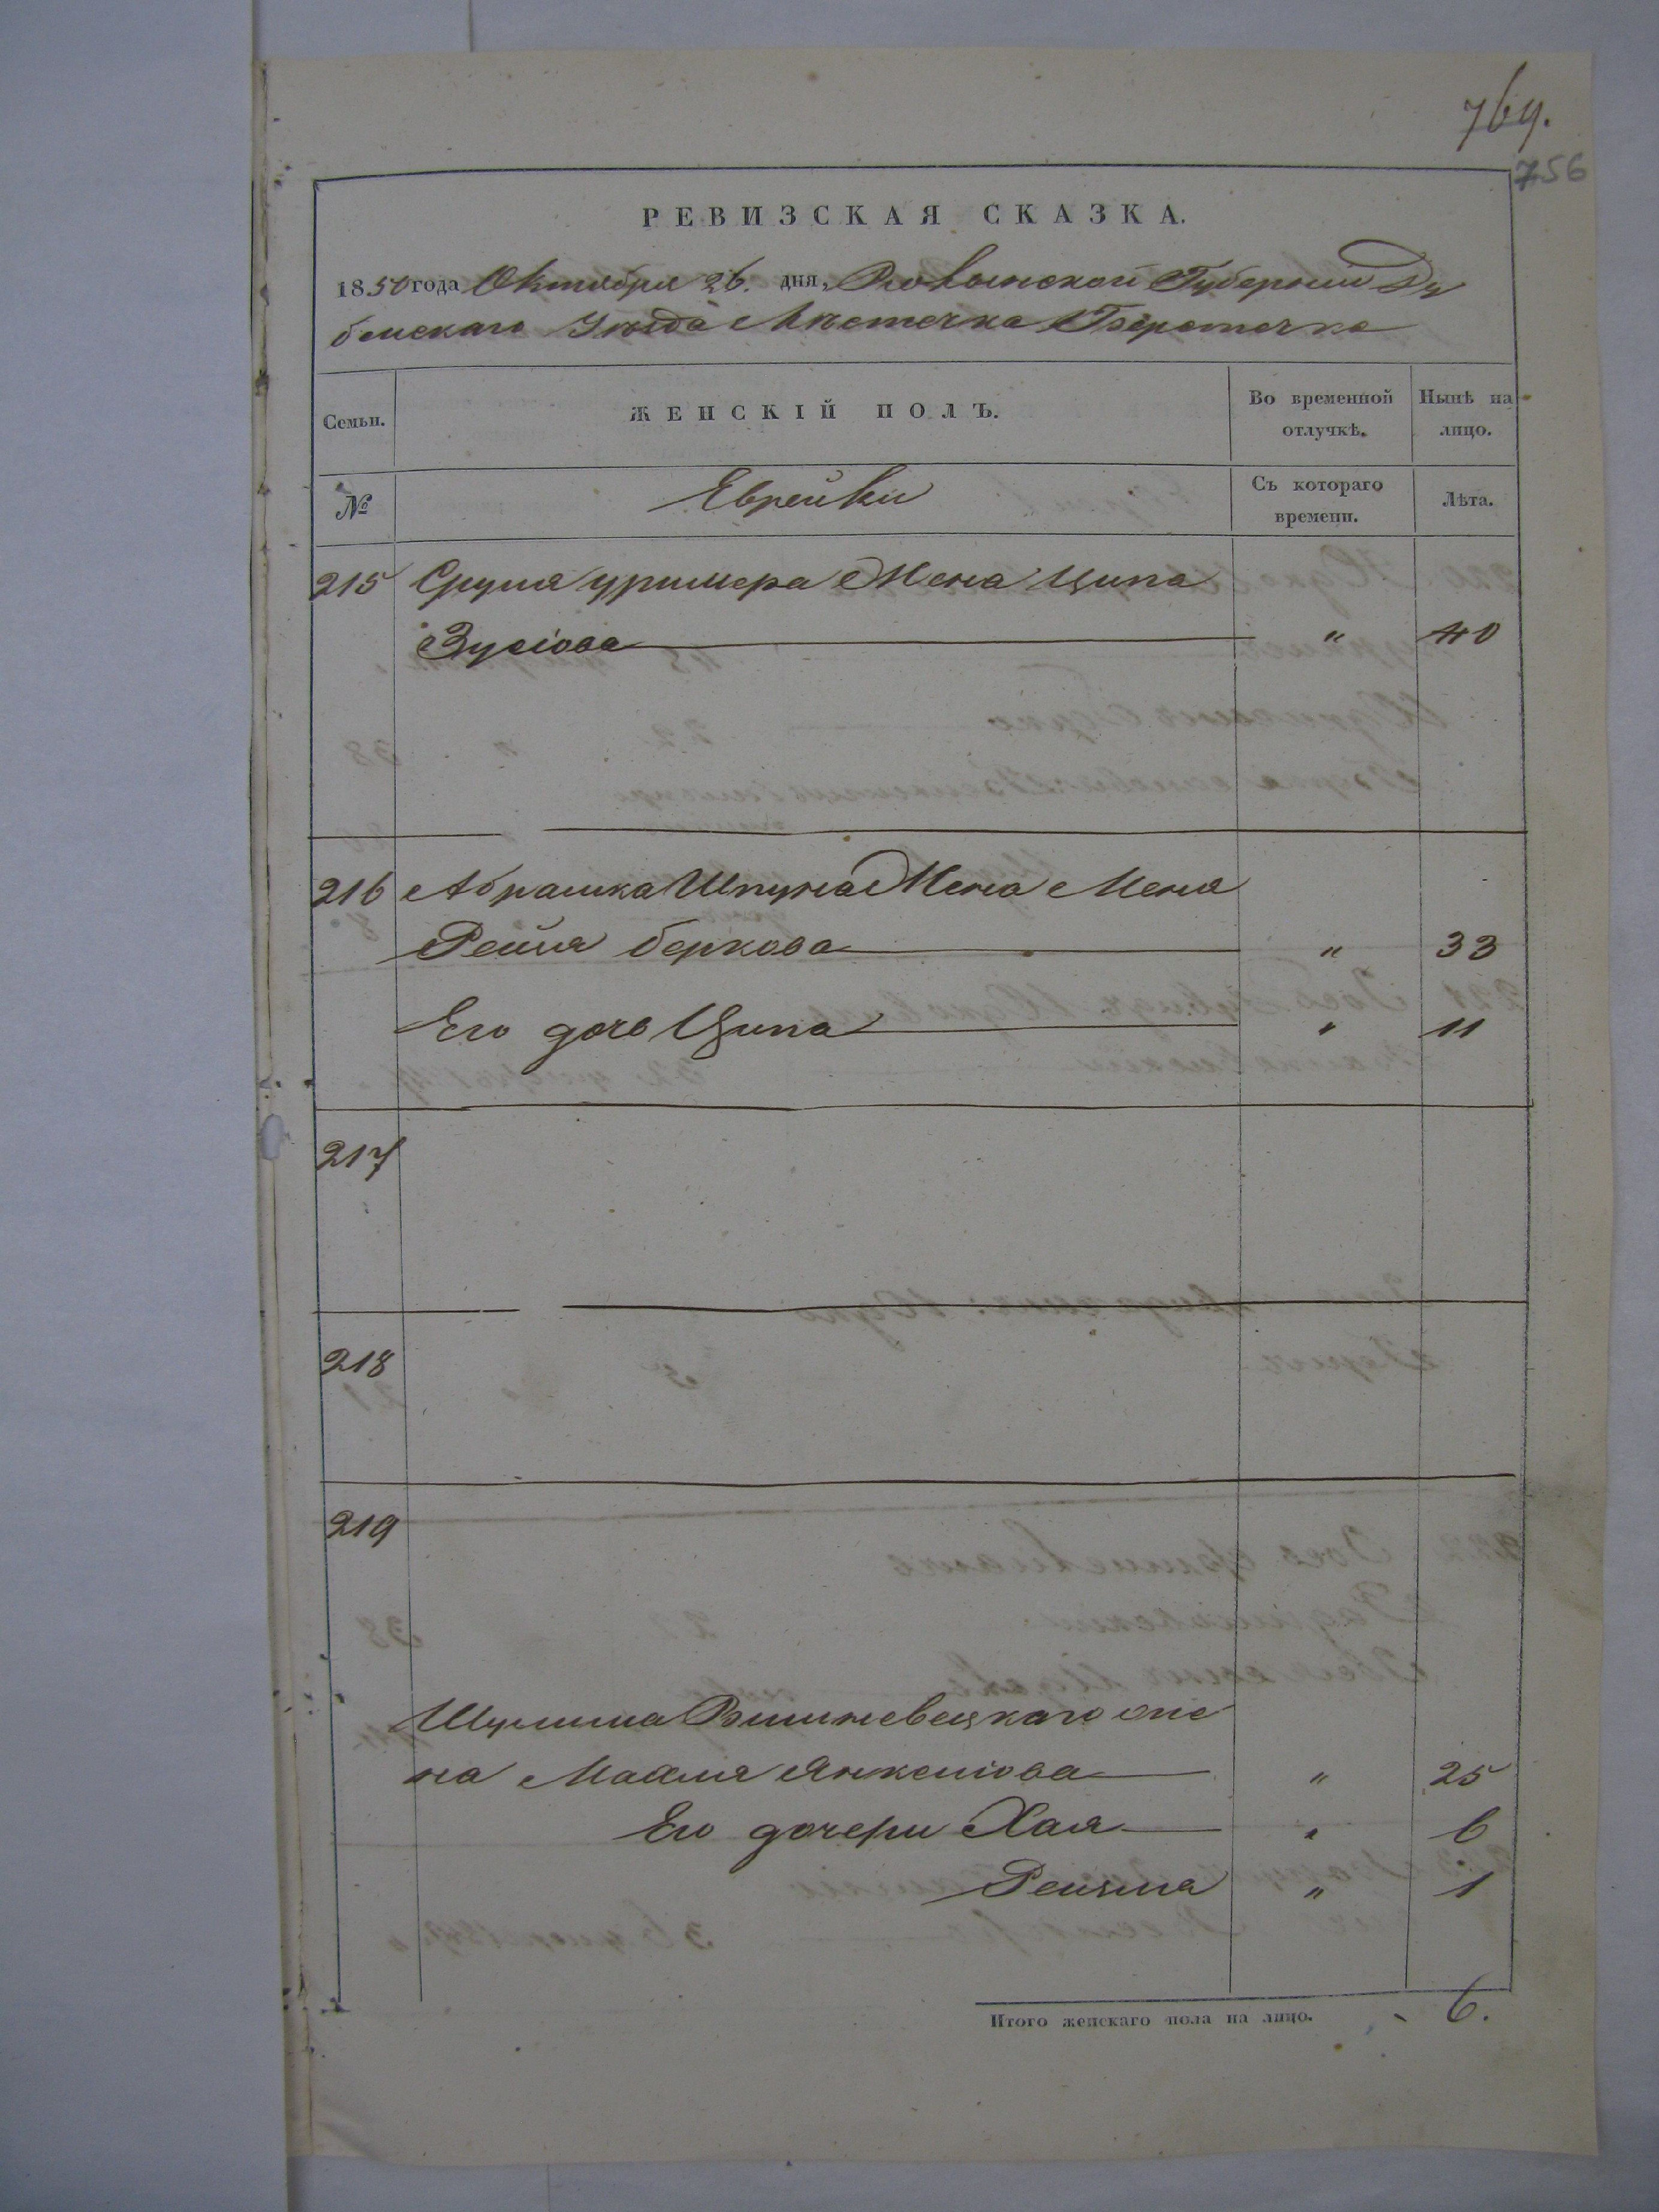 769.
756
РЕВИЗСКАЯ СКАЗКА.
1850 года Октября 26. дня, Волынской Губерніи Ду
бенскаго Уѣзда Мѣстечка Берестечка
Семьи.
ЖЕНСКІЙ ПОЛЪ.
Во временной отлучкѣ.
Нынѣ на лицо.
№
Еврейки
Съ котораго времени.
Лѣта.
215 Сруля Жена Ципа
Зусіова " 40
216 Абрамка Шпуна Жена Меня
Рейзя беркова " 33
Его дочь Ципа " 11
217
218
219
Шулима Вишневецкаго же
на Махля Янкеліова " 25
Его дочери Хая " 6
" 1
Итого женскаго пола на лицо. 6.